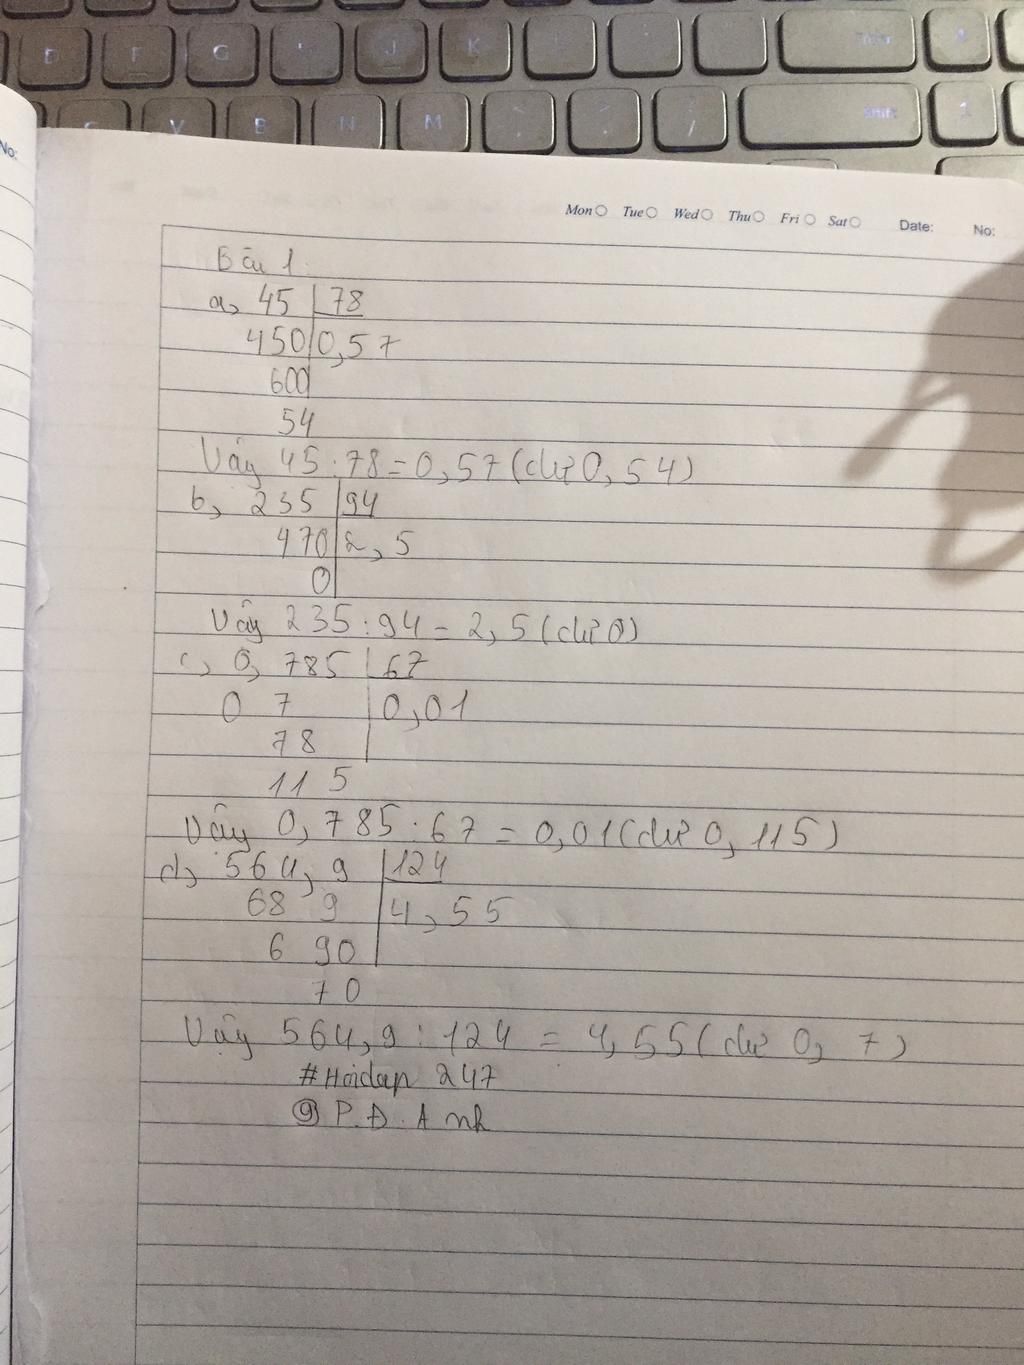 D F G J K
V B N M Shift
No:
Mon Tue Wed Thu Fri Sat Date: No:
Bài 1:
a, 45 78
450 0,57
600
54
Vậy 45 : 78 = 0,57 (dư 0,54)
b, 235 94
470 2,5
0
Vậy 235 : 94 = 2,5 (dư 0)
c, 0,785 67
0 7 0,01
78
11 5
Vậy 0,785 : 67 = 0,01 (dư 0,115)
d, 564,9 124
68 9 4,55
6 90
70
Vậy 564,9 : 124 = 4,55 (dư 0,7)
#Hoidap 247
@P.Đ.Anh